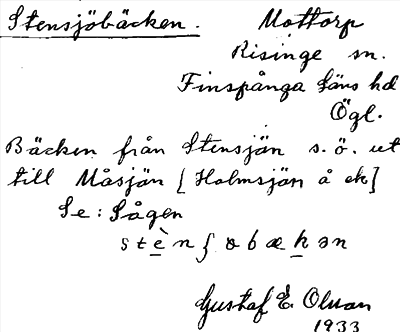 Stensjöbäcken. Mottorp
Risinge sn.
Finspånga läns hd
Ögl.
Bäcken från Stensjön s.ö. ut
till Måsjön [Holmsjön å ek]
Se: Sågen
Gustaf E. Olsson
1933